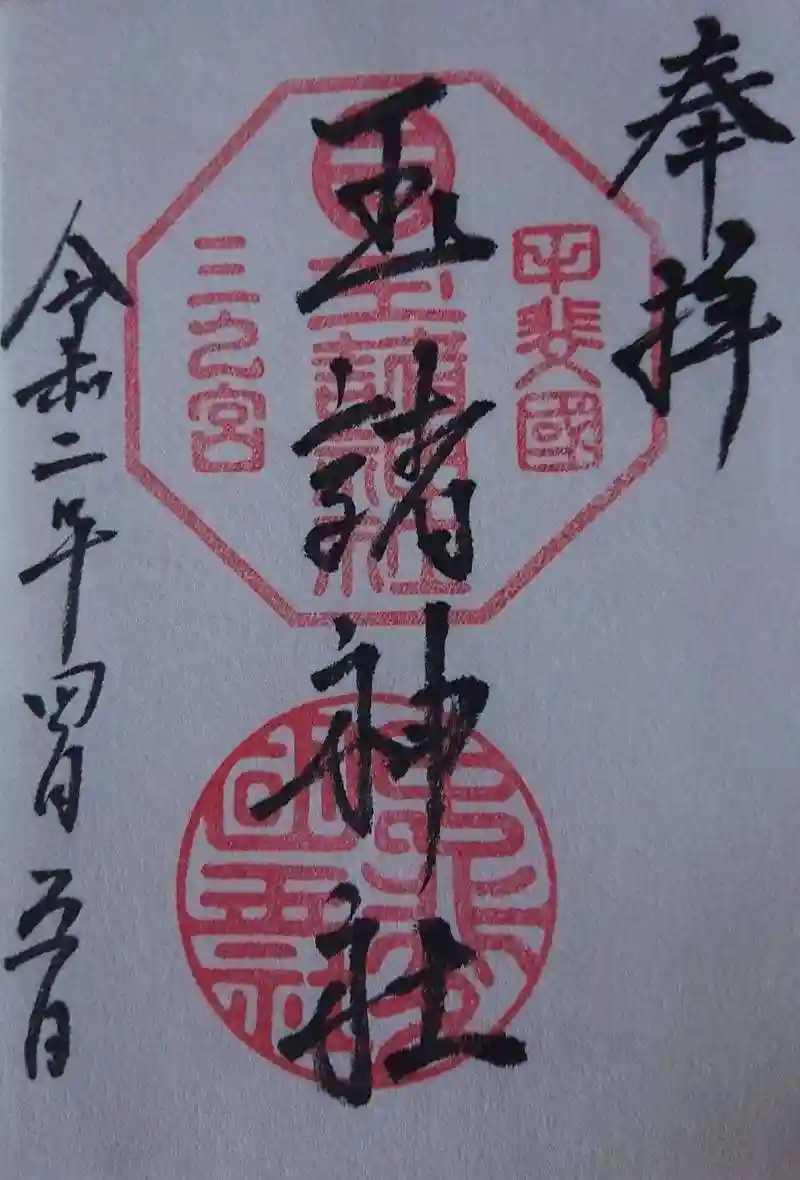 奉拝
甲斐國
玉諸神社
玉諸神社
三之宮
令和二年四月五日